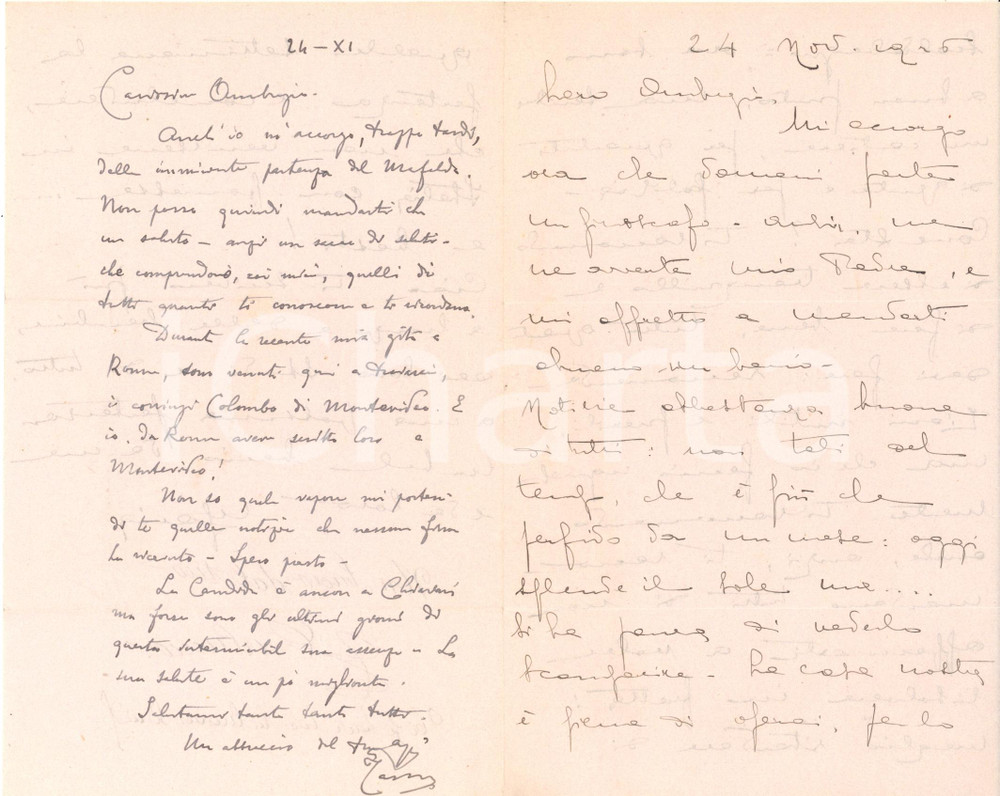 24-XI
Carissimo Ambrogio.
Anch'io m'accorgo, troppo tardi,
della imminente partenza del Mafalda.
Non posso quindi mandarti che
un saluto - anzi un sacco di saluti -
che comprendono, coi miei, quelli di
tutti quanti ti conoscono e ti ricordano.
Durante la recente mia gita a
Roma, sono venuti qui a trovarci,
i coniugi Colombo di Montevideo. E
io, da Roma avevo scritto loro a
Montevideo!
Non so quale vapore mi porterà
di te quelle notizie che nessun finora
ha ricevuto - Spero presto -
La Candida è ancora a Chiavari
ma forse sono gli ultimi giorni di
questa interminabile sua assenza - La
sua salute è un pò migliorata.
Salutami tanto tanto tutti.
Un abbraccio dal tuo
24 Nov. 1926
Caro Ambrogio,
Mi accorgo
ora che domani parte
un piroscafo - anzi, me
ne avverte mio Padre, e
mi affretto a mandarti
almeno un bacio -
Notizie abbastanza buone
di tutti: non tali del
tempo, che è più che
perfido da un mese: oggi
splende il sole ma....
si ha paura di vederlo
scomparire. La casa nostra
è piena di operai, per lo
iCharta